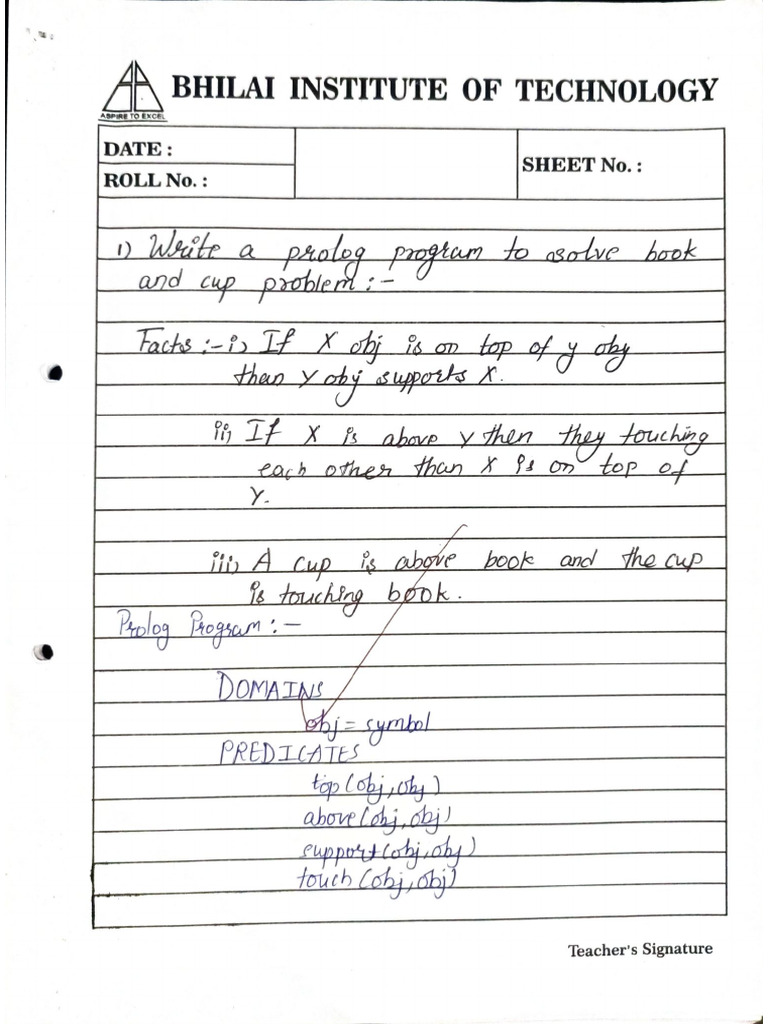 BHILAI INSTITUTE OF TECHNOLOGY
ASPIRE TO EXCEL
DATE :
ROLL No. :
SHEET No. :
1) Write a prolog program to solve book
and cup problem :-
Facts :- i) If X obj is on top of y obj
than Y obj supports X.
ii) If X is above Y then they touching
each other than X is on top of
Y.
iii) A cup is above book and the cup
is touching book.
Prolog Program :-
DOMAINS
obj = symbol
PREDICATES
top (obj, obj)
above (obj, obj)
support (obj, obj)
touch (obj, obj)
Teacher's Signature